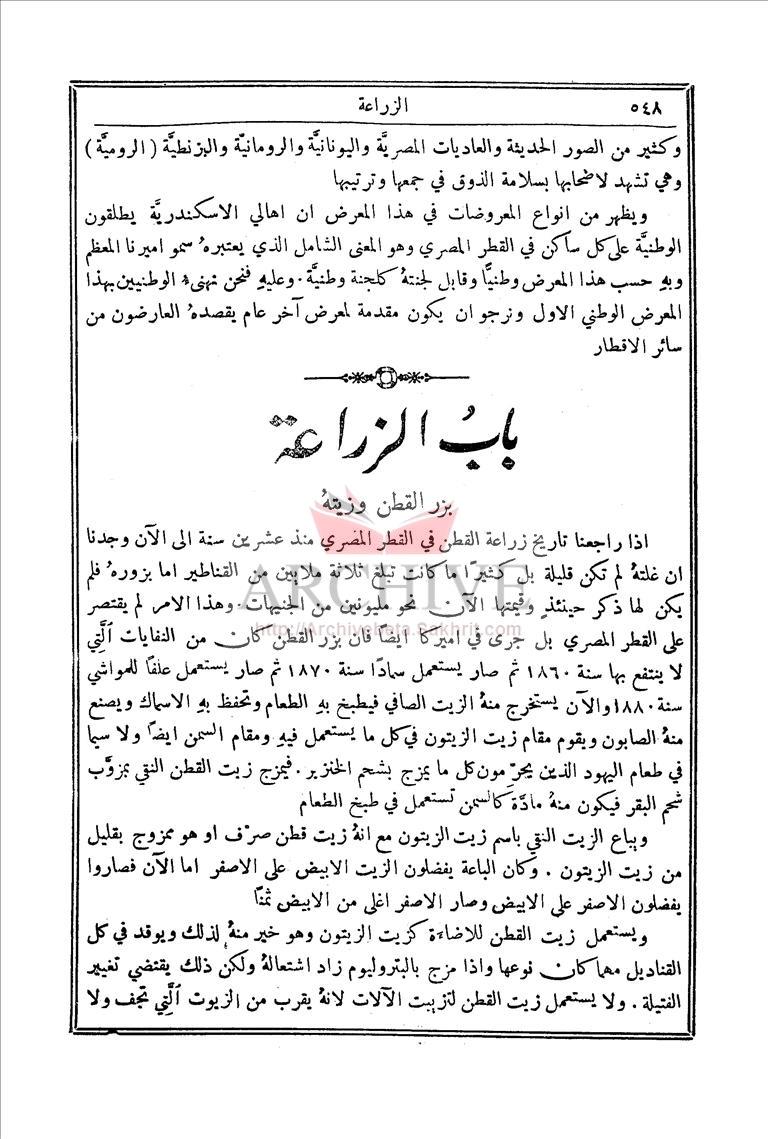 ٥٤٨ الزراعة
وكثير من الصور الحديثة والعاديات المصريَّة واليونانيَّة والرومانيَّة والبزنطيَّة (الروميَّة)
وهي تشهد لاصحابها بسلامة الذوق في جمعها وترتيبها
ويظهر من انواع المعروضات في هذا المعرض ان اهالي الاسكندريَّة يطلقون
الوطنيَّة على كل ساكن في القطر المصري وهو المعنى الشامل الذي يعتبرهُ سمو اميرنا المعظم
وبهِ حسب هذا المعرض وطنيًّا وقابل لجنتهُ كلجنة وطنيَّة . وعليهِ فنحن نهنىء الوطنيين بهذا
المعرض الوطني الاول ونرجو ان يكون مقدمة لمعرض آخر عام يقصدهُ العارضون من
سائر الاقطار
بابُ الزراعة
بزر القطن وزيتهُ
اذا راجعنا تاريخ زراعة القطن في القطر المصري منذ عشرين سنة الى الآن وجدنا
ان غلتهُ لم تكن قليلة بل كثيرًا ما كانت تبلغ ثلاثة ملايين من القناطير اما بزورهُ فلم
يكن لها ذكر حينئذٍ وقيمتها الآن نحو مليونين من الجنيهات . وهذا الامر لم يقتصر
على القطر المصري بل جرى في اميركا ايضًا فان بزر القطن كان من النفايات الَّتي
لا ينتفع بها سنة ١٨٦٠ ثم صار يستعمل سمادًا سنة ١٨٧٠ ثم صار يستعمل علفًا للمواشي
سنة ١٨٨٠ والآن يستخرج منهُ الزيت الصافي فيطبخ بهِ الطعام وتحفظ بهِ الاسماك ويصنع
منهُ الصابون ويقوم مقام زيت الزيتون في كل ما يستعمل فيهِ ومقام السمن ايضًا ولا سيما
في طعام اليهود الذين يحرّمون كل ما يمزج بشحم الخنزير . فيمزج زيت القطن النقي بمزوَّب
شحم البقر فيكون منهُ مادَّة كالسمن تستعمل في طبخ الطعام
ويباع الزيت النقي باسم زيت الزيتون مع انهُ زيت قطن صرْف او هو ممزوج بقليل
من زيت الزيتون . وكان الباعة يفضلون الزيت الابيض على الاصفر اما الآن فصاروا
يفضلون الاصفر على الابيض وصار الاصفر اغلى من الابيض ثمنًا
ويستعمل زيت القطن للاضاءة كزيت الزيتون وهو خير منهُ لذلك ويوقد في كل
القناديل مهما كان نوعها واذا مزج بالبتروليوم زاد اشتعالهُ ولكن ذلك يقتضي تغيير
الفتيلة . ولا يستعمل زيت القطن لتزييت الآلات لانهُ يقرب من الزيوت الَّتي تجف ولا
ARCHIVE
http://Archivebeta.Sakhrit.com